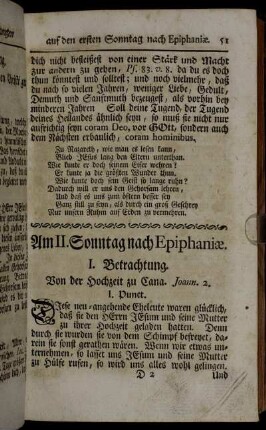 auf den ersten Sonntag nach Epiphaniæ. 51
dich nicht befleißest von einer Stärk und Macht
zur andern zu gehen, Ps. 83. v. 8. da du es doch
thun könntest und solltest; und noch vielmehr, daß
du nach so vielen Jahren, weniger Liebe, Gedult,
Demuth und Sanftmuth bezeugest, als vorhin bey
minderen Jahren Soll deine Tugend, der Tugend
deines Heilandes ähnlich seyn, so muß sie nicht nur
aufrichtig seyn coram Deo, vor GOtt, sondern auch
dem Nächsten erbaulich, coram hominibus,
Zu Nazareth, wie man es lesen kann,
Blieb JEsus lang den Eltern unterthan.
Wie kunte er doch seinem Eifer wehren?
Wie kunte er die größten Wunder thun,
Wie kunte doch sein Geist so lange ruhn?
Dadurch will er uns den Gehorsam lehren,
Und daß es uns zum öftern besser sey
Ganz still zu seyn, als durch ein groß Geschrey
Nur unsern Ruhm auf Erden zu vermehren.
Am II. Sonntag nach Epiphaniæ.
I. Betrachtung.
Von der Hochzeit zu Cana. Joann. 2.
I. Punct.
Diese neu-angehende Eheleute waren glücklich,
daß sie den HErrn JEsum und seine Mutter
zu ihrer Hochzeit geladen hatten. Denn
durch sie wurden sie von dem Schimpf befreyet, da-
rein sie sonst gerathen wären. Wenn wir etwas un-
ternehmen, so lasset uns JEsum und seine Mutter
zu Hülfe rufen, so wird uns alles wohl gelingen.
D 2 Und